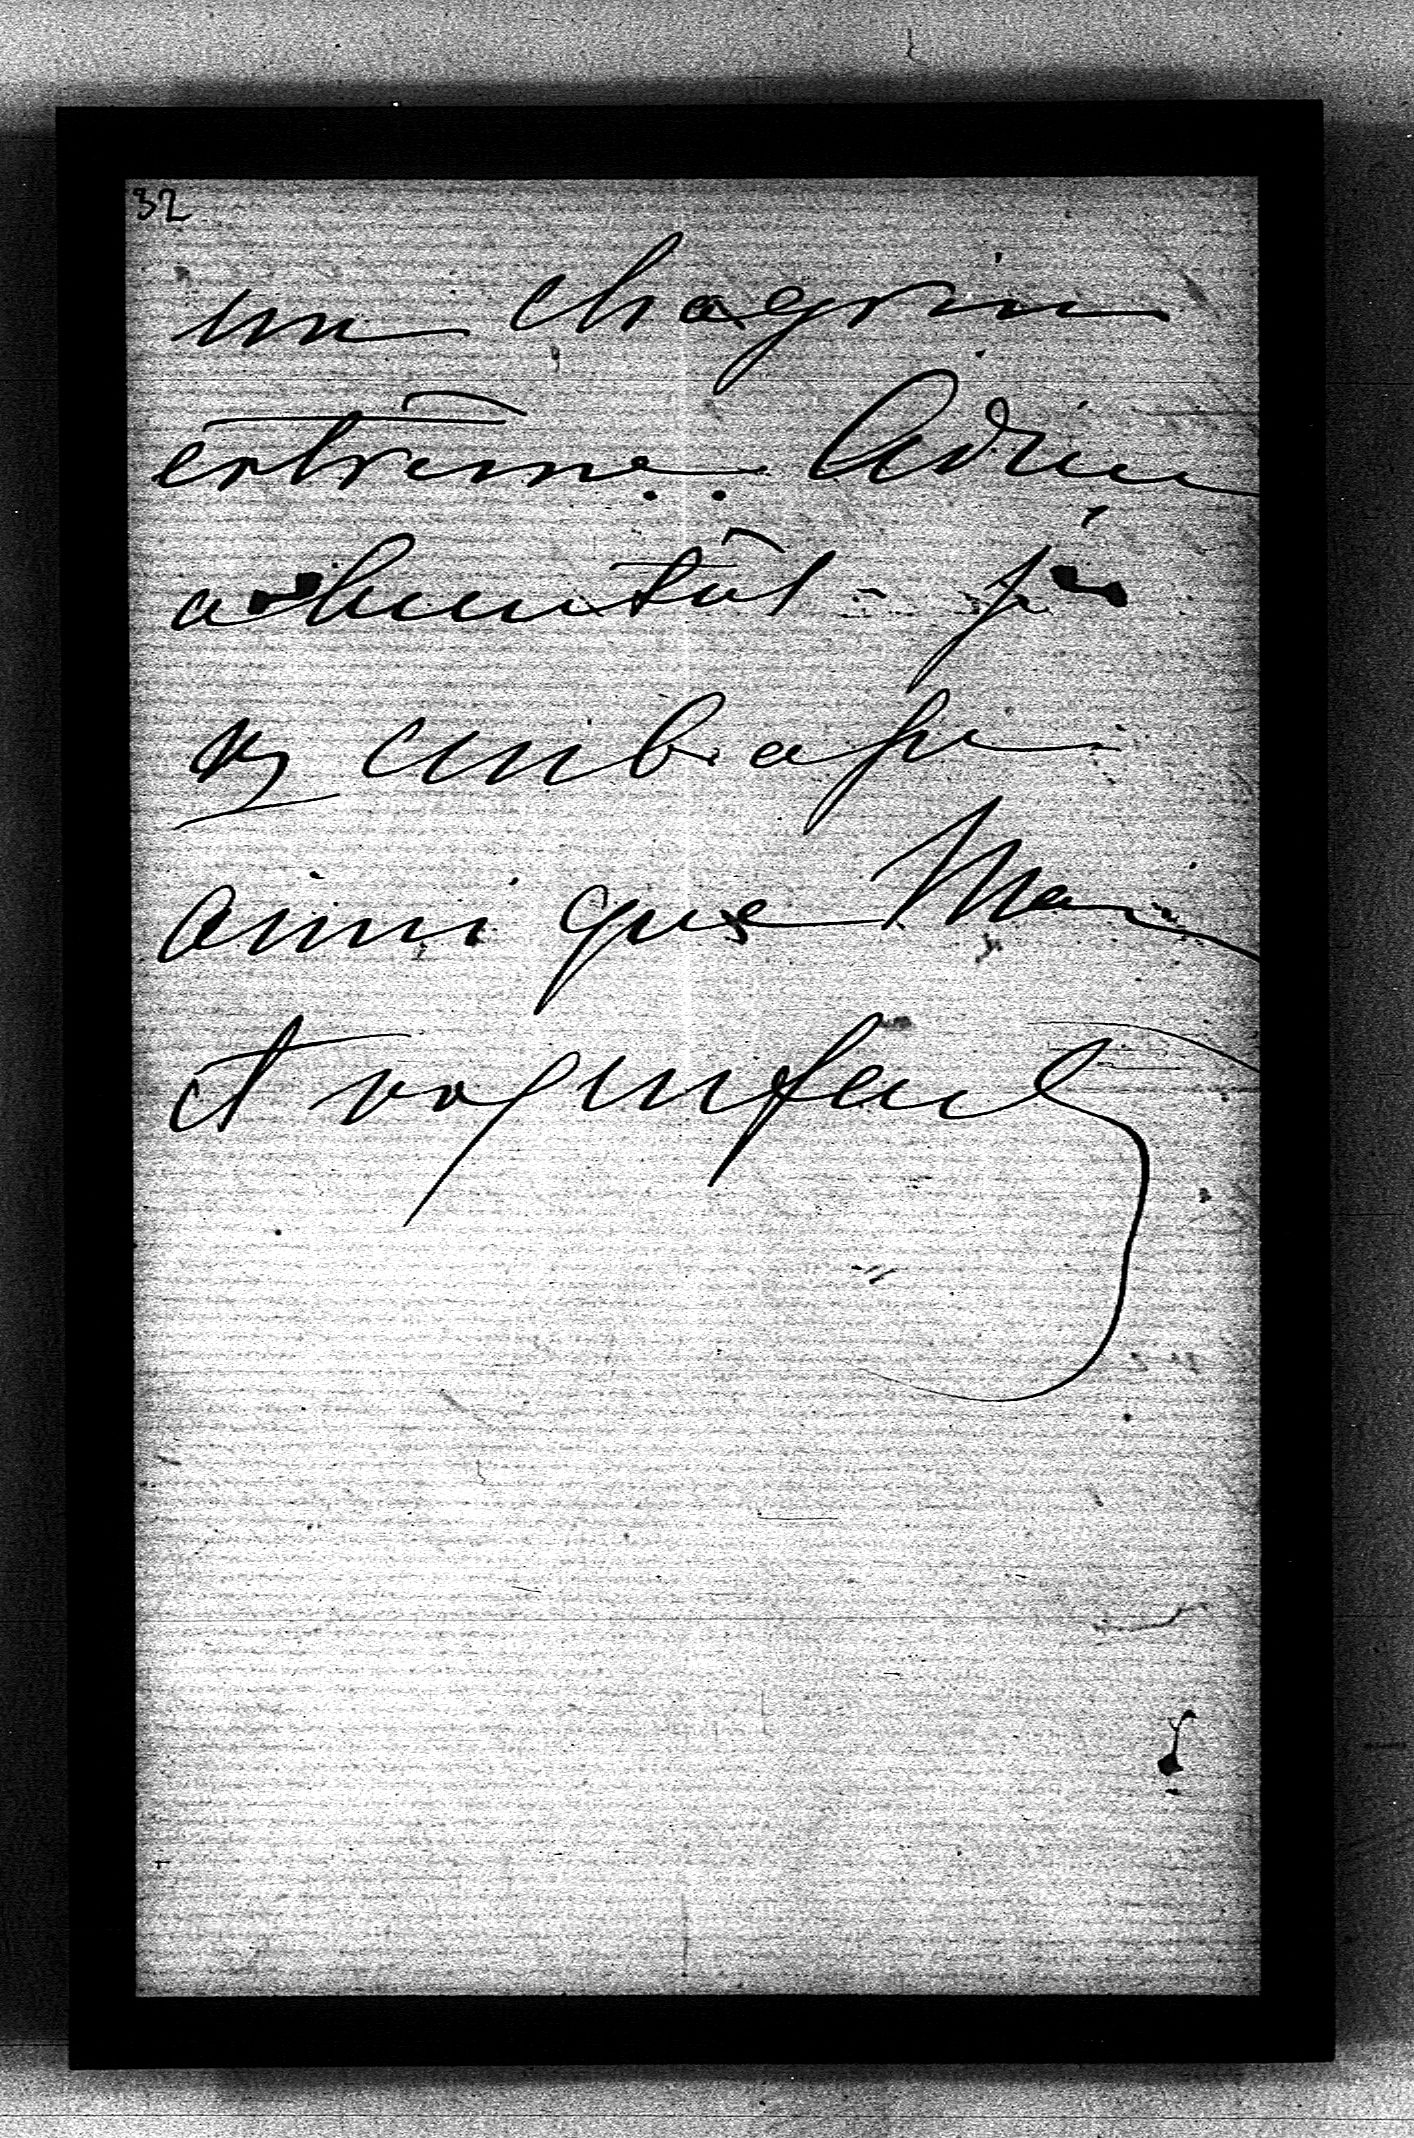 32
un chagrin
extrême. Adieu
a bientôt - je
vs embrasse
ainsi que Marie
et vos enfants